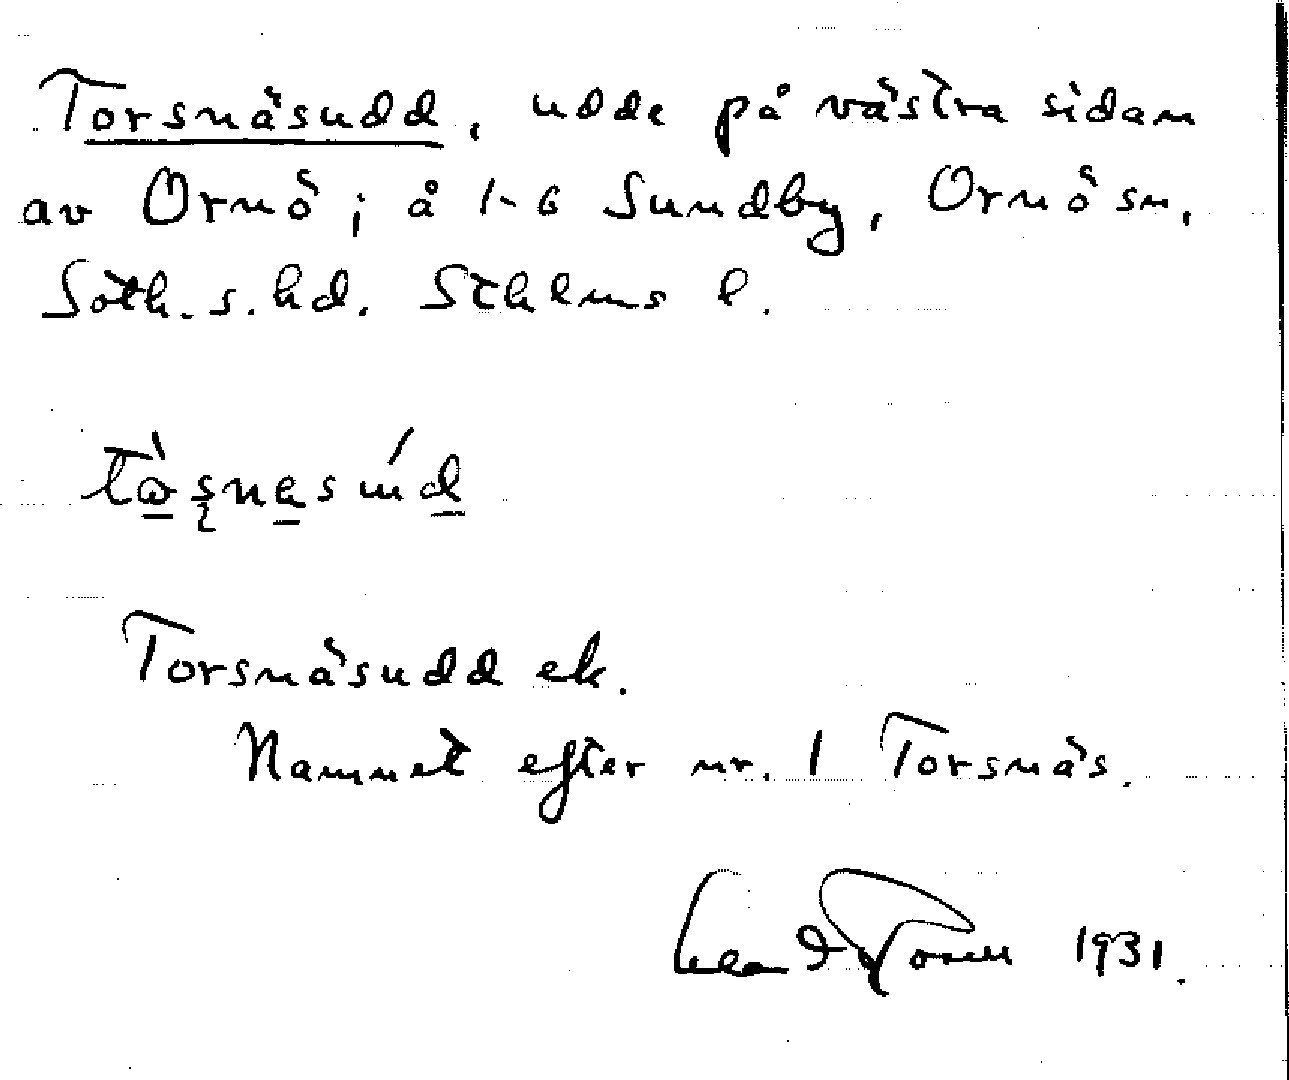 Torsnäsudd, udde på västra sidan
av Ornö; å 1-6 Sundby, Ornö sn,
Soth. s. hd. Sthlms l.
Torsnäsudd ek.
Namnet efter nr. 1 Torsnäs.
1931.